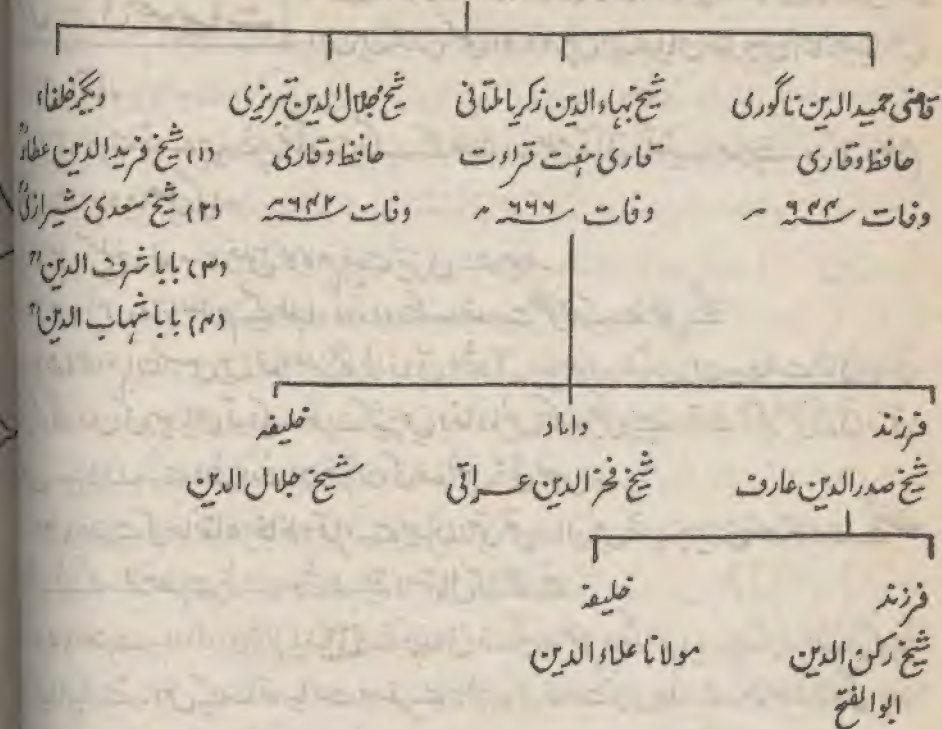 قاضی حمیدالدین ناگوری
حافظ وقاری
وفات ۶۴۴ھ
شیخ بہاءالدین زکریا ملتانی
قاری ہفت قراءت
وفات ۶۶۶ھ
شیخ جلال الدین تبریزی
حافظ وقاری
وفات ۶۴۲ھ
دیگر خلفاء
(۱) شیخ فریدالدین عطارؒ
(۲) شیخ سعدی شیرازیؒ
(۳) بابا شرف الدینؒ
(۴) بابا شہاب الدینؒ
فرزند
شیخ صدرالدین عارف
داماد
شیخ فخرالدین عراقی
خلیفہ
شیخ جلال الدین
فرزند
شیخ رکن الدین
ابوالفتح
خلیفہ
مولانا علاءالدین